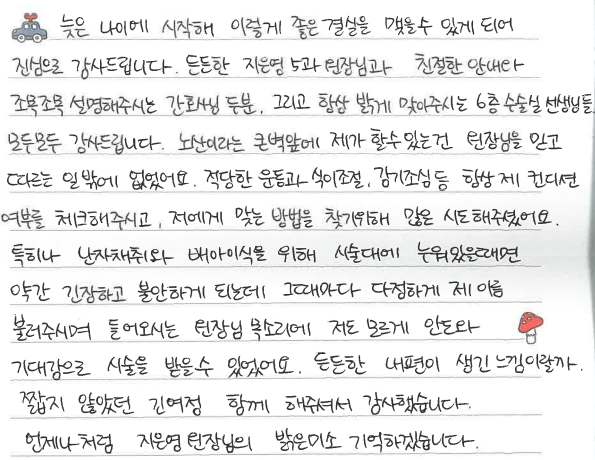 늦은 나이에 시작해 이렇게 좋은 결실을 맺을수 있게 되어
진심으로 감사드립니다. 든든한 지은영 5과 원장님과 친절한 안내와
조목조목 설명해주시는 간호사님 두분, 그리고 항상 밝게 맞아주시는 6층 수술실 선생님들
모두모두 감사드립니다. 노산이라는 큰벽앞에 제가 할수있는건 원장님을 믿고
따르는 일밖에 없었어요. 적당한 운동과 식이조절, 감기조심 등 항상 제 컨디션
여부를 체크해주시고, 저에게 맞는 방법을 찾기위해 많은 시도해주셨어요.
특히나 난자채취와 배아이식을 위해 시술대에 누워있을때면
약간 긴장하고 불안하게 되는데 그때마다 다정하게 제 이름
불러주시며 들어오시는 원장님 목소리에 저도 모르게 안도와
기대감으로 시술을 받을수 있었어요. 든든한 내편이 생긴 느낌이랄까.
짧지 않았던 긴여정 함께 해주셔서 감사했습니다.
언제나처럼 지은영 원장님의 밝은미소 기억하겠습니다.